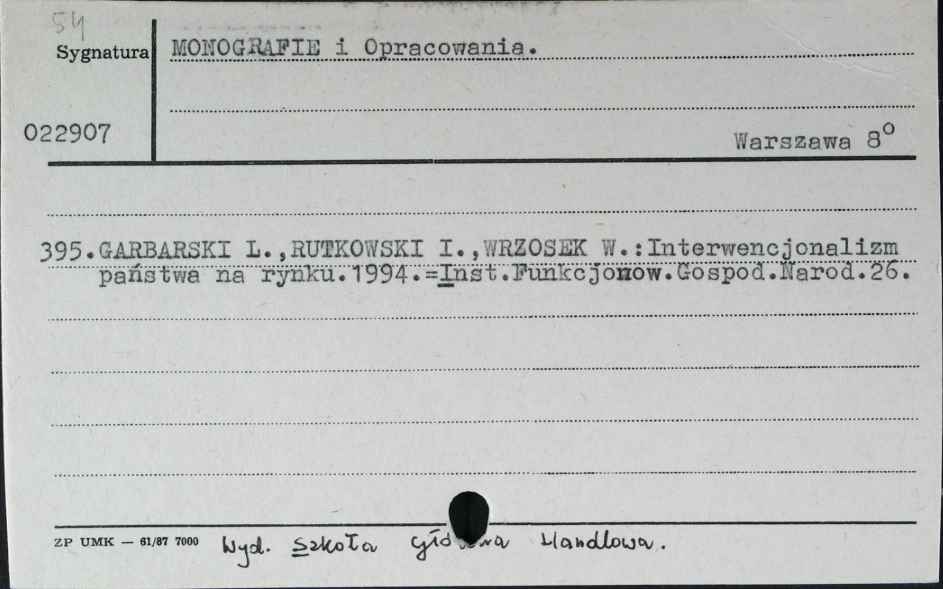 54
Sygnatura MONOGRAFIE i Opracowania.
022907
Warszawa 8º
395.GARBARSKI L.,RUTKOWSKI I.,WRZOSEK W.:Interwencjonalizm
państwa na rynku.1994.=Inst.Funkcjonow.Gospod.Narod.26.
ZP UMK — 61/87 7000 Wyd. Szkoła Główna Handlowa.